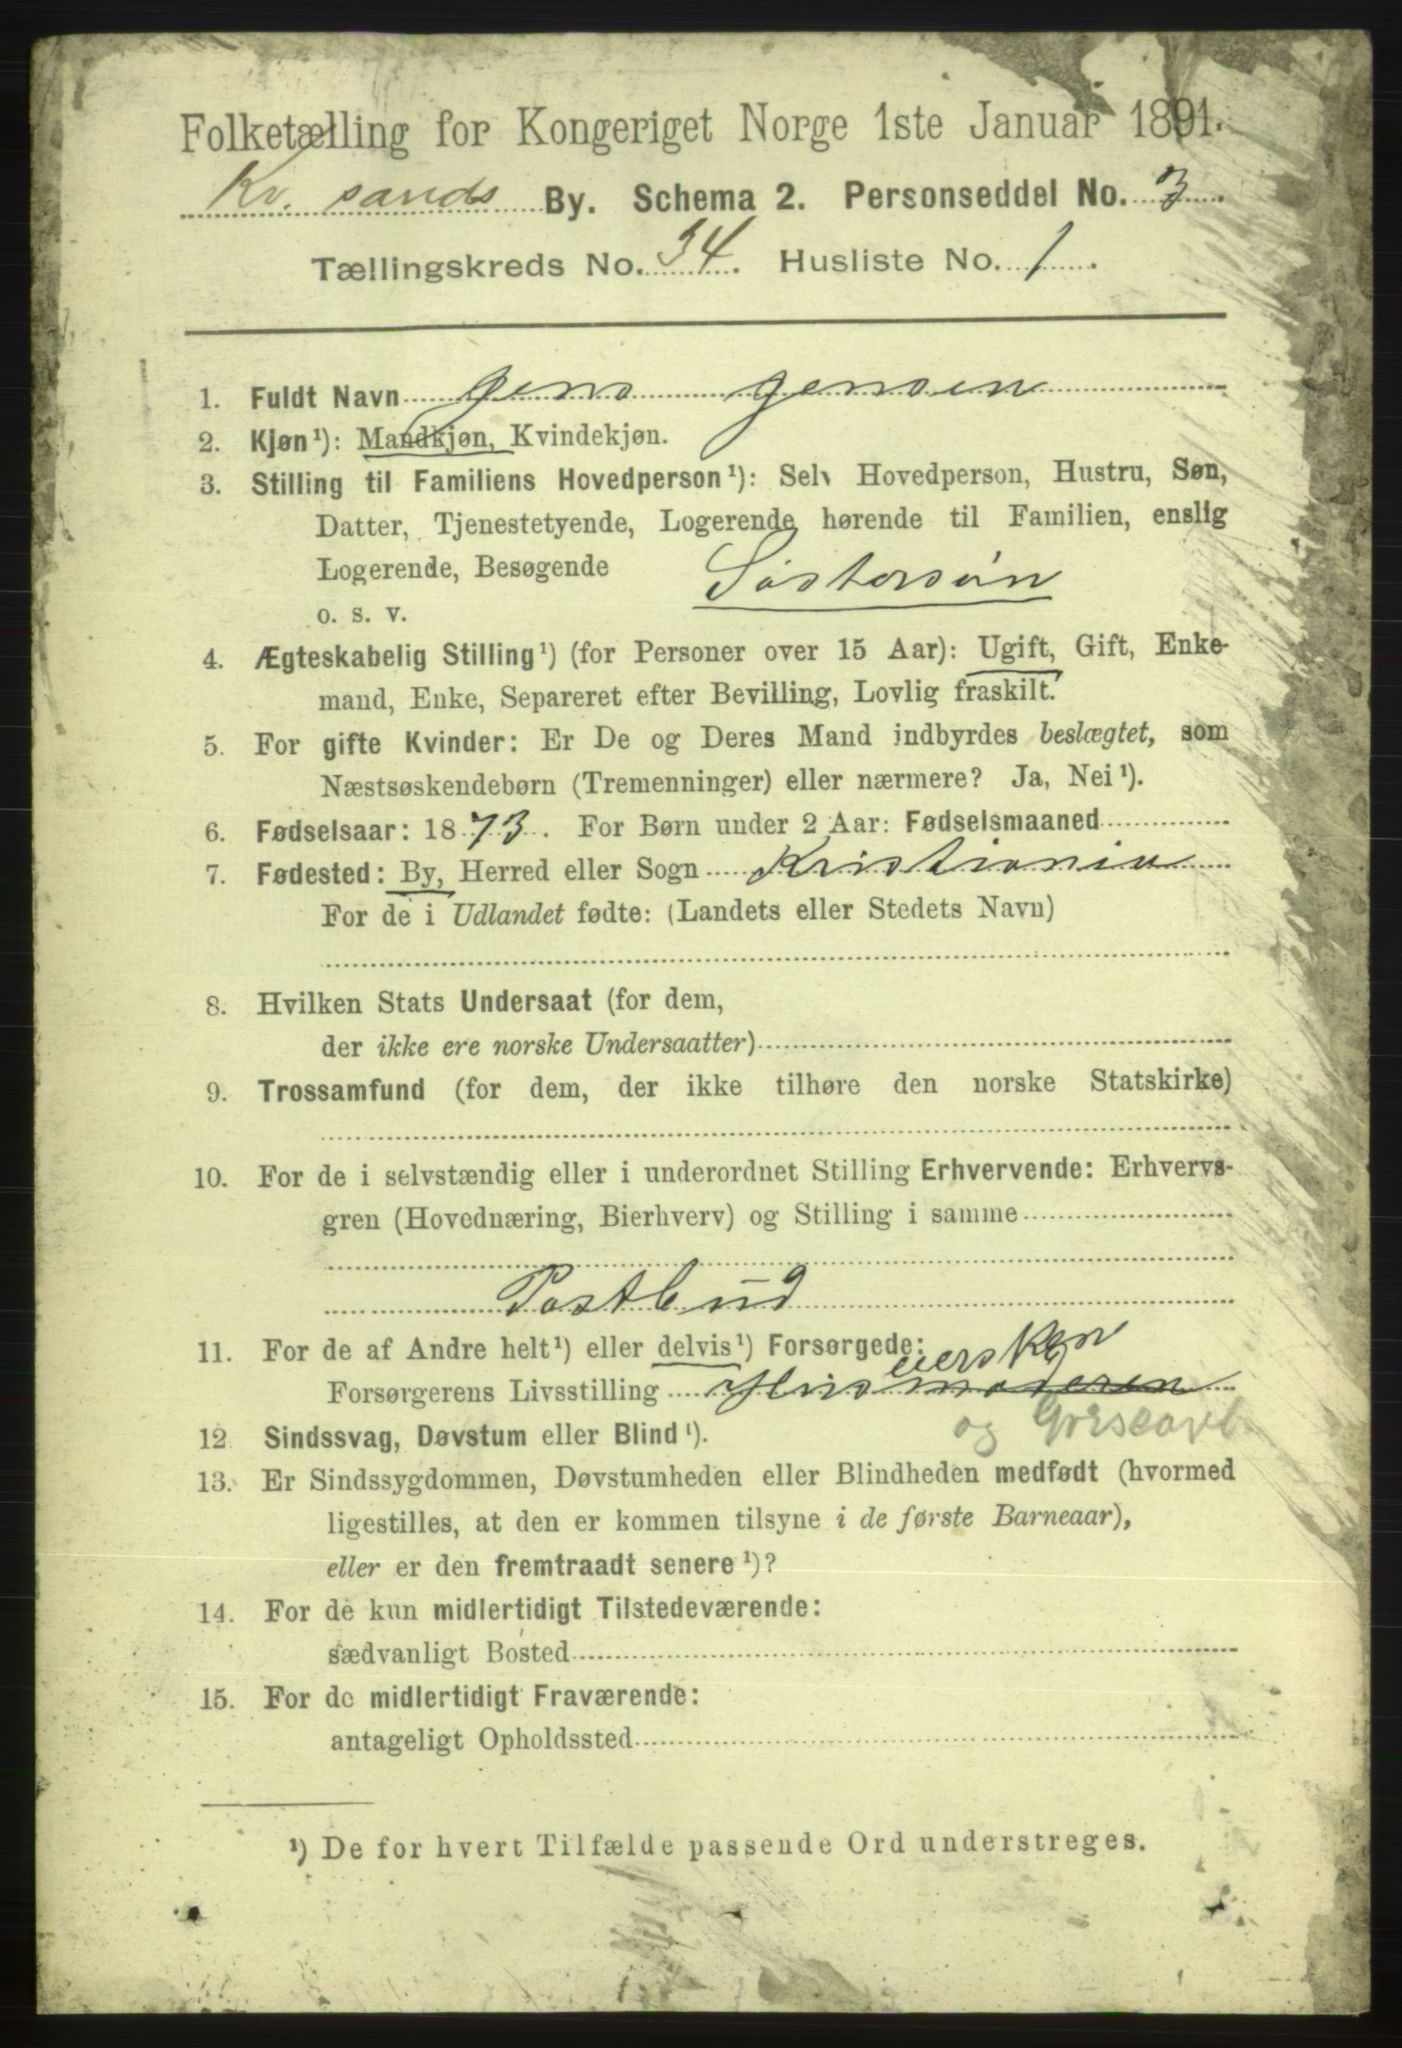 Folketælling for Kongeriget Norge 1ste Januar 1891.
Kr. sands By. Schema 2. Personseddel No. 3.
Tællingskreds No. 34. Husliste No. 1.
1. Fuldt Navn Jens Jensen
2. Kjøn¹): Mandkjøn, Kvindekjøn.
3. Stilling til Familiens Hovedperson¹): Selv Hovedperson, Hustru, Søn,
Datter, Tjenestetyende, Logerende hørende til Familien, enslig
Logerende, Besøgende Søstersøn
o. s. v.
4. Ægteskabelig Stilling¹) (for Personer over 15 Aar): Ugift, Gift, Enke-
mand, Enke, Separeret efter Bevilling, Lovlig fraskilt.
5. For gifte Kvinder: Er De og Deres Mand indbyrdes beslægtet, som
Næstsøskendebørn (Tremenninger) eller nærmere? Ja, Nei¹).
6. Fødselsaar: 1873. For Børn under 2 Aar: Fødselsmaaned
7. Fødested: By, Herred eller Sogn Kristiania
For de i Udlandet fødte: (Landets eller Stedets Navn)
8. Hvilken Stats Undersaat (for dem,
der ikke ere norske Undersaatter)
9. Trossamfund (for dem, der ikke tilhøre den norske Statskirke)
10. For de i selvstændig eller i underordnet Stilling Erhvervende: Erhvervs-
gren (Hovednæring, Bierhverv) og Stilling i samme
Postbud
11. For de af Andre helt¹) eller delvis¹) Forsørgede:
eiersken
Forsørgerens Livsstilling Hus
og
12. Sindssvag, Døvstum eller Blind¹).
13. Er Sindssygdommen, Døvstumheden eller Blindheden medfødt (hvormed
ligestilles, at den er kommen tilsyne i de første Barneaar),
eller er den fremtraadt senere¹)?
14. For de kun midlertidigt Tilstedeværende:
sædvanligt Bosted
15. For de midlertidigt Fraværende:
antageligt Opholdssted
¹) De for hvert Tilfælde passende Ord understreges.